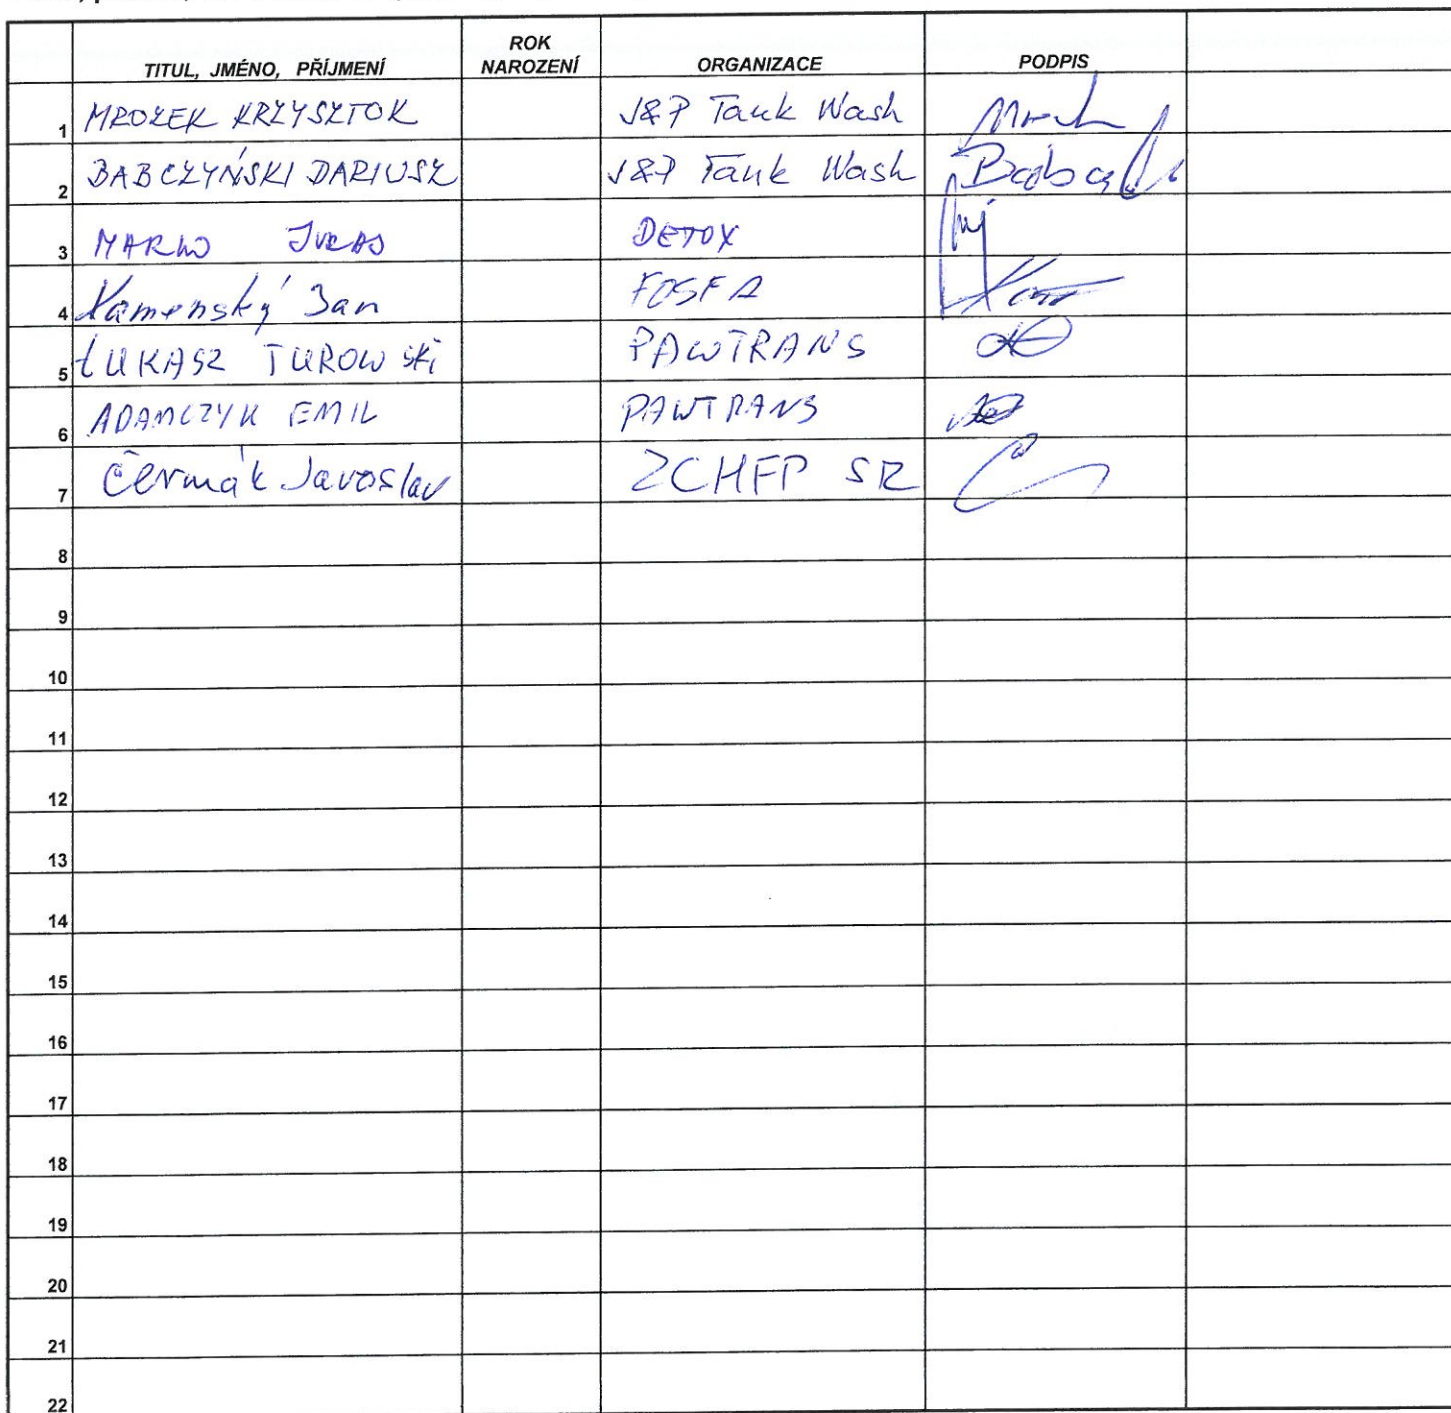 TITUL, JMÉNO, PŘÍJMENÍ ROK NAROZENÍ ORGANIZACE PODPIS
1 MROZEK KRZYSZTOK J&P Tank Wash
2 BABCZYŃSKI DARIUSZ J&P Tank Wash
3 MARKO DETOX
4 Kamenský Jan FOSFA
5 ŁUKASZ TUROWSKI PAWTRANS
6 ADAMCZYK EMIL PAWTRANS
7 Čermák Jaroslav ZCHFP SR
8
9
10
11
12
13
14
15
16
17
18
19
20
21
22